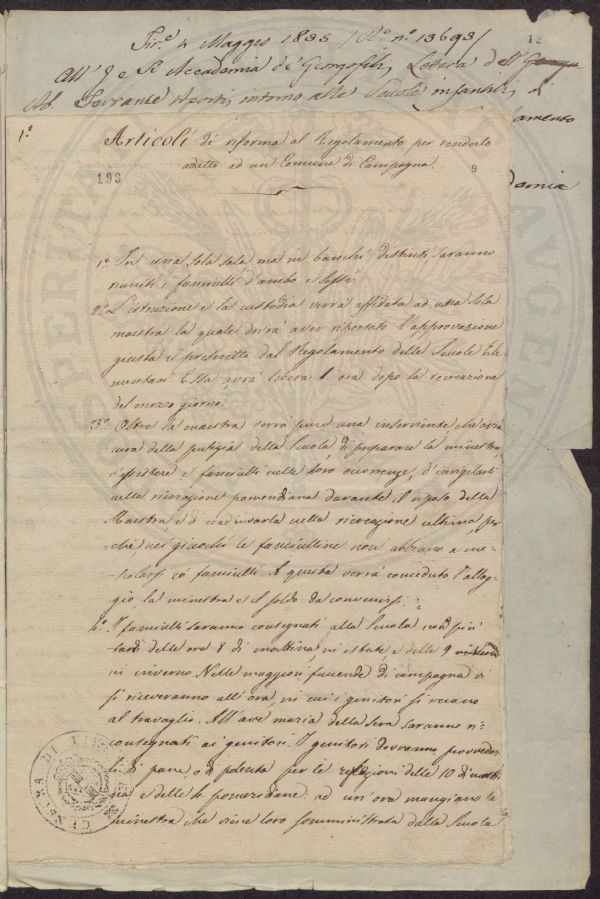 Fir.e 4 Maggio 1835 / N.o 13693/
12
All' I e R Accademia de' Georgofili, Lettera dell'
Ab. Ferrante Aporti intorno alle Scuole infantili, di
1.o
Articoli di riforma al Regolamento per renderlo
adatto ad un Comune di Campagna.
193
9
1.o In una sola sala ma in banchi distinti, saranno
riuniti i fanciulli d'ambo i sessi.
2.o L'istruzione e la custodia verrà affidata ad una sola
maestra la quale dovrà aver riportato l'approvazione
giusta il prescritto dal Regolamento delle Scuole Ele
mentari. Essa avrà libera 1. ora dopo la recreazione
del mezzo giorno.
3.o Oltre la maestra verrà pure una inserviente che avrà
cura della pulizia della Scuola, di preparare la minestra,
d'assistere i fanciulli nelle loro occorrenze, d'invigilarli
nella ricreazione pomeridiana durante il riposo della
Maestra, e di coadiuvarla nella ricreazione ultima, per
-chè nei giuochi le fanciulline non abbiano a me-
-scolarsi co' fanciulli. A questa verrà conceduto l'allog-
gio, la minestra e il soldo da convenirsi.
4.o I fanciulli saranno consegnati alla Scuola non più
tardi delle ore 8 di mattina, in estate, e delle 9
in inverno. Nelle maggiori faccende di campagna vi
si riceveranno all'ora, in cui i genitori si recano
al travaglio. All'ave maria della Sera saranno ri-
consegnati ai genitori. I genitori dovranno provveder
li di pane, o di polenta per le refezioni delle 10 di matti
na e delle 4 pomeridiane: ad un'ora mangiano la
minestra che viene loro somministrata dalla Scuola